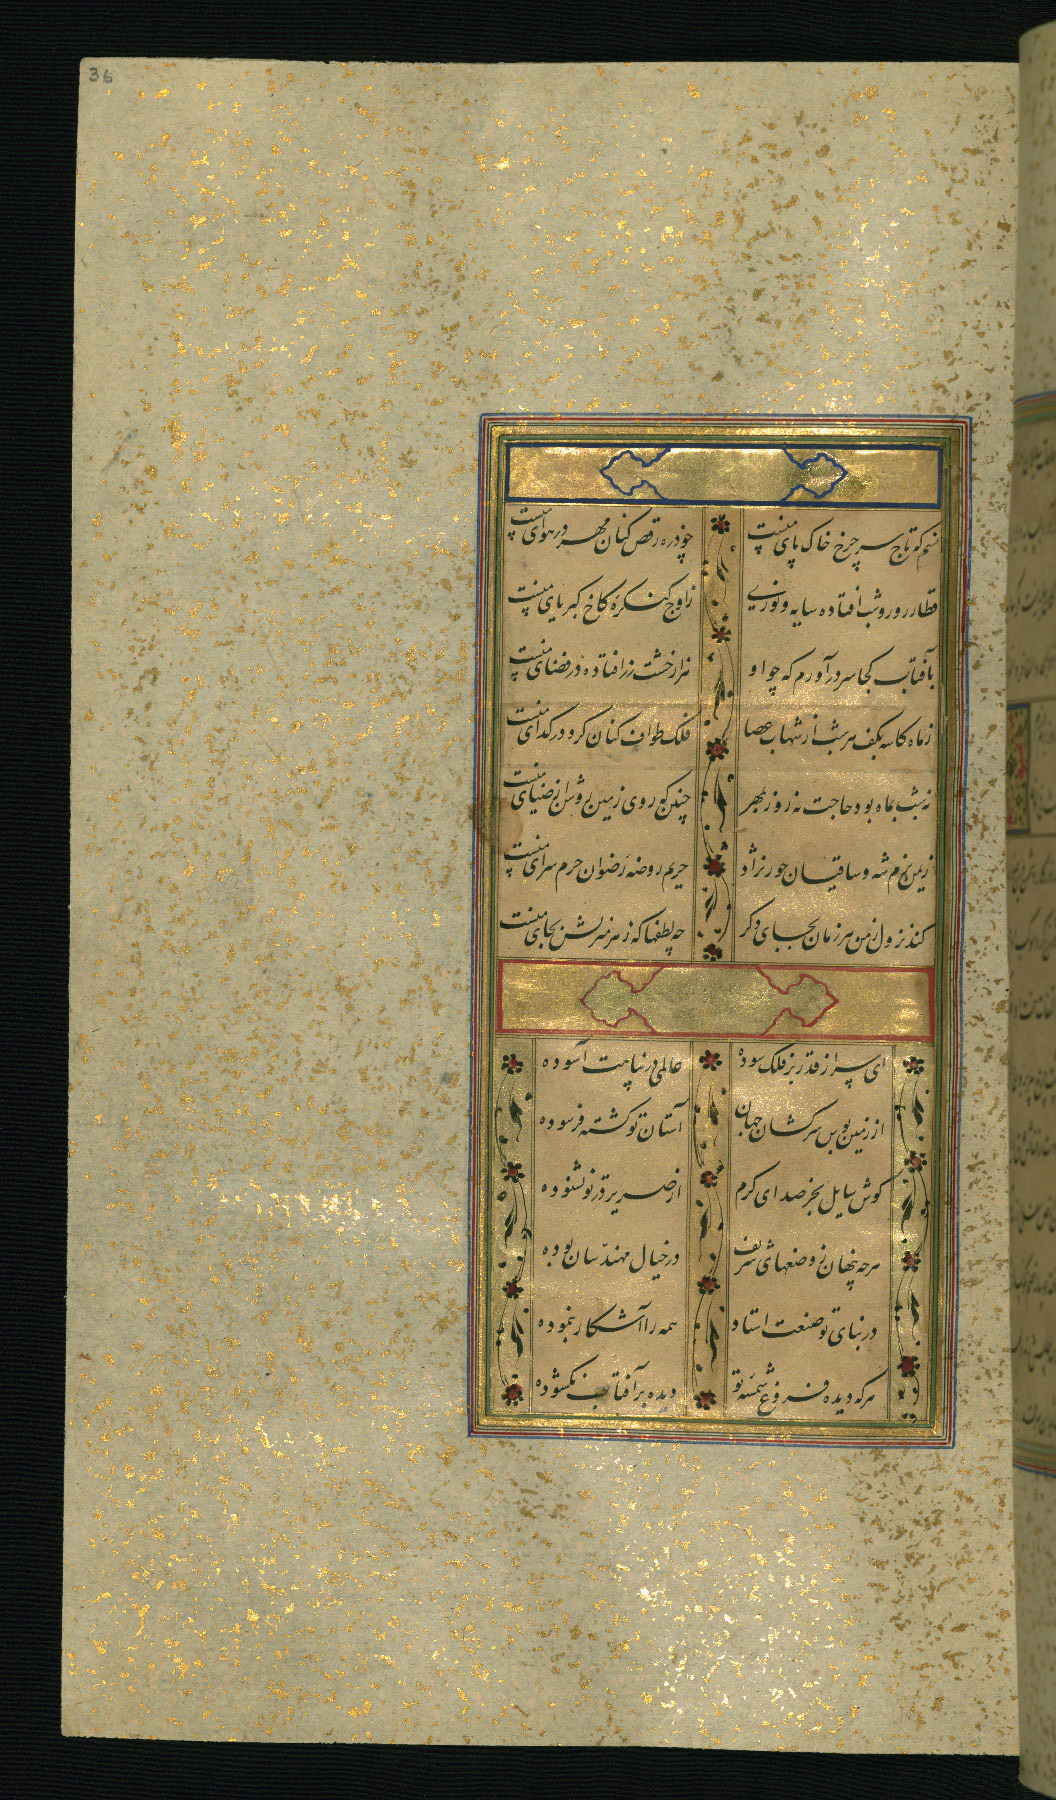 36
منم که تاج سر چرخ خاک پای منست چو ذره رقص کنان مهر در هوای منست
قطار روز و شب افتاده سایه و نوری ز اوج کنگره کاخ کبریای منست
بآفتاب کجا سر درآورم که چو او هزار خشت زر افتاده در فضای منست
ز ماه کاسه بکف هر شب از شهاب عصا فلک طواف کنان کرد در کدای منست
نه شب بماه بود حاجت نه روز بمهر چنین که روی زمین روشن از ضیای منست
زیمن بزم شه و ساقیان حور نژاد حریم روضه رضوان حرم سرای منست
کند نزول زمن هر زمان بجای دکر چه لطفها که ز هر منزلش بجای منست
ای سر از قدر بر فلک سوده عالمی در پناهت آسوده
از زمین بوس سرکشان جهان آستان تو کشته فرسوده
کوش سایل بجز صدای کرم از صریر در تو نشنوده
هرچه پنهان ز وضعهای شریف در خیال مهندسان بوده
در بنای تو صنعت استاد همه را آشکار بنموده
هر که دیده فروغ شمسه تو دیده بر آفتاب نکشوده